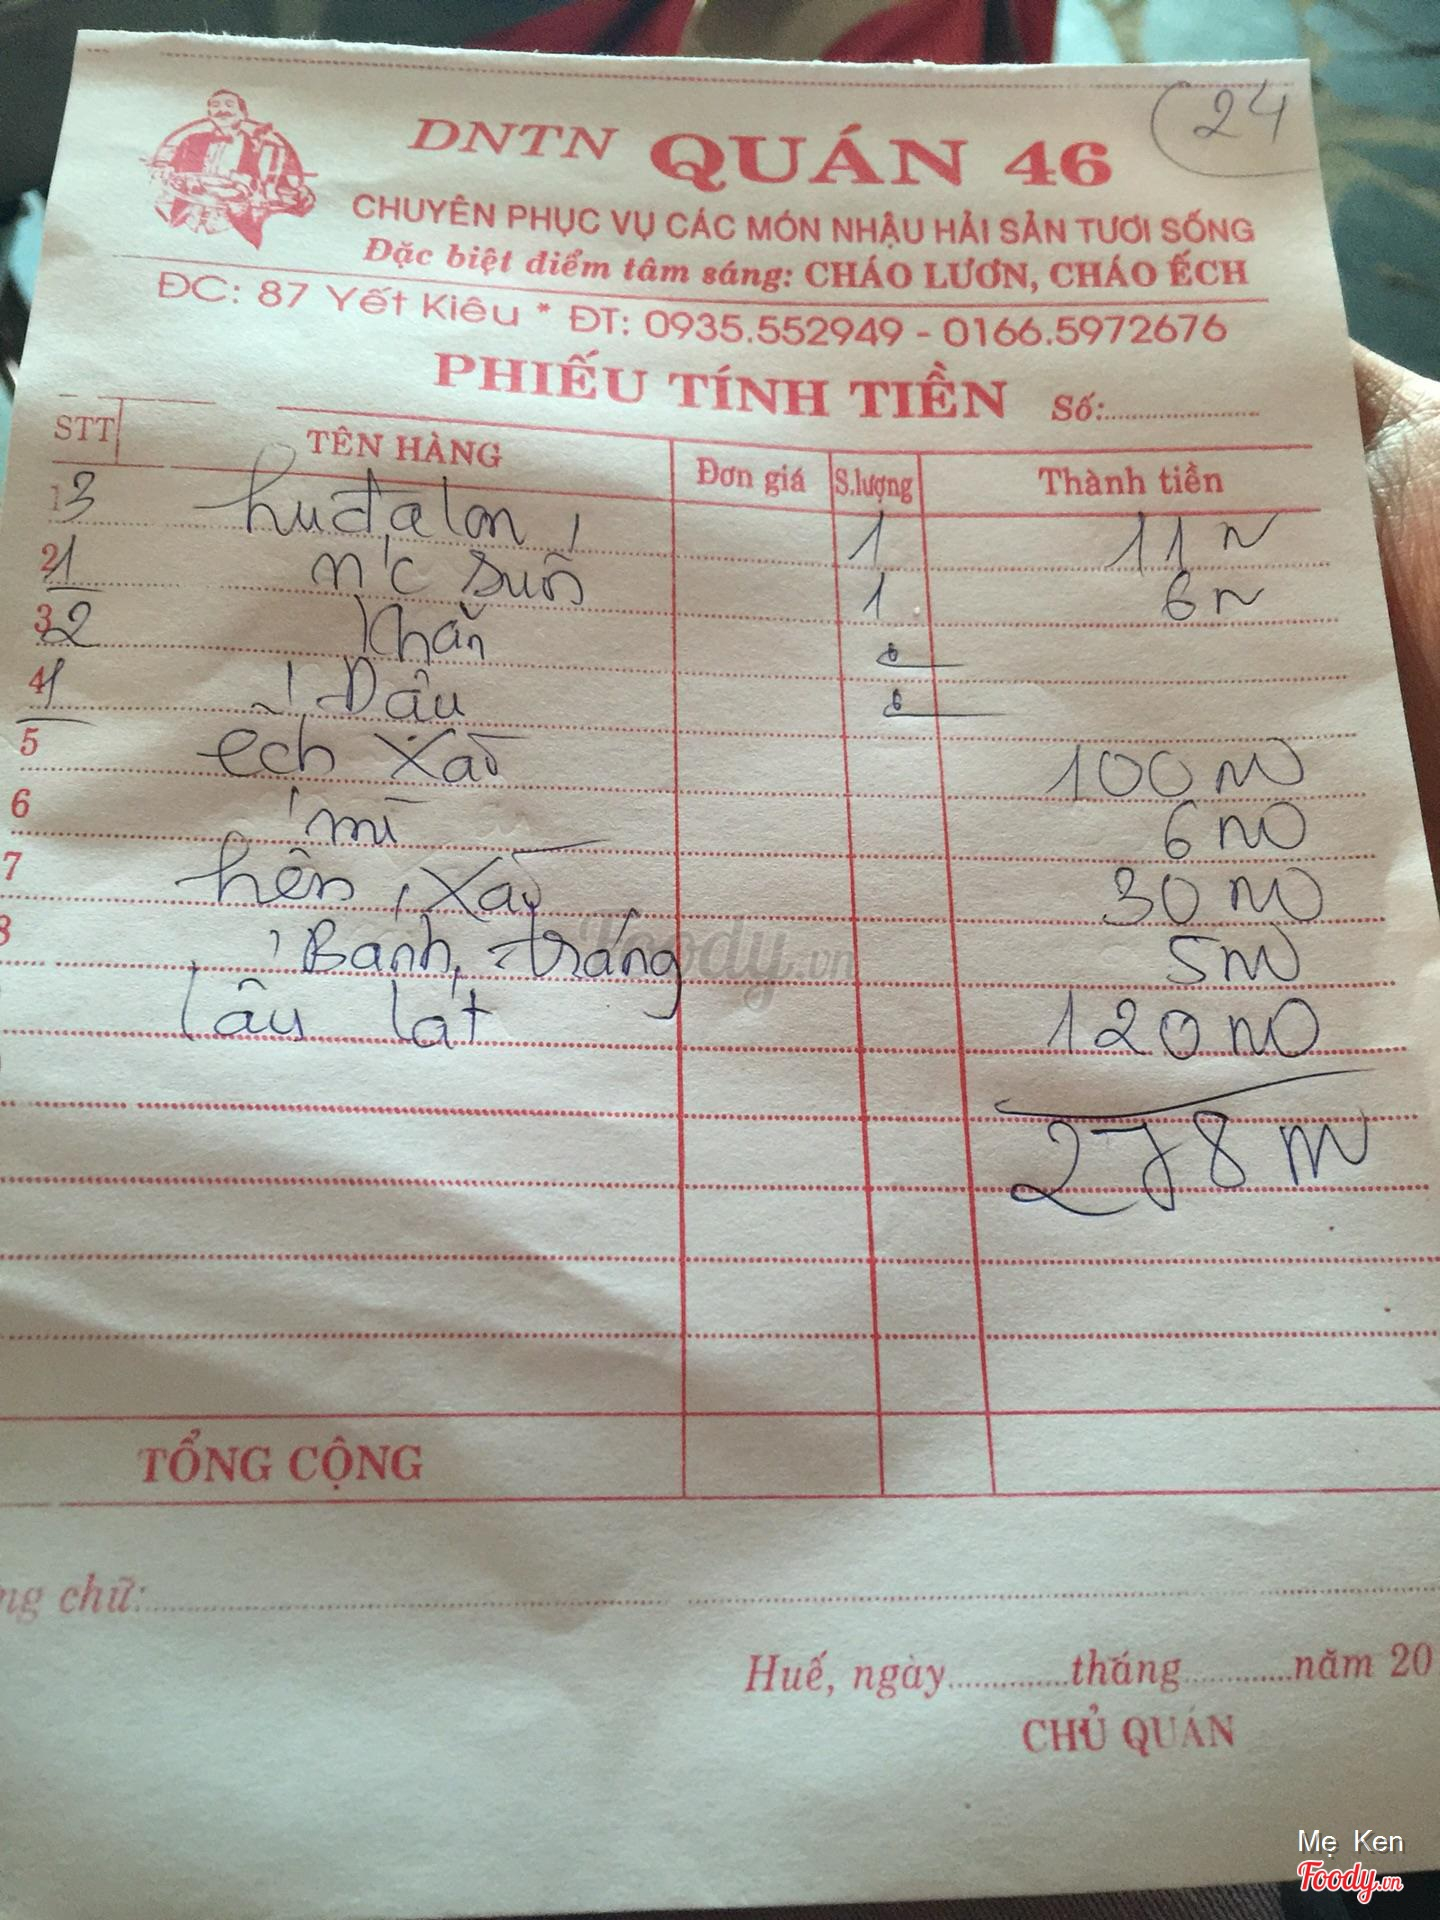 24
DNTN QUÁN 46
CHUYÊN PHỤC VỤ CÁC MÓN NHẬU HẢI SẢN TƯƠI SỐNG
Đặc biệt điểm tâm sáng: CHÁO LƯƠN, CHÁO ẾCH
ĐC: 87 Yết Kiêu * ĐT: 0935.552949 - 0166.5972676
PHIẾU TÍNH TIỀN Số:
STT TÊN HÀNG Đơn giá S.lượng Thành tiền
1 3 huđa lon 1 11
2 1 n'c suối 1 6
3 2 khăn
4 1 Dậu
5 ếch xào 100
6 mì 6
7 hến xào 30
8 Bánh tráng 5
lâu lat 120
278
TỔNG CỘNG
ng chữ:
Huế, ngày tháng năm 20
CHỦ QUÁN
Foody.vn
Mẹ Ken
Foody.vn